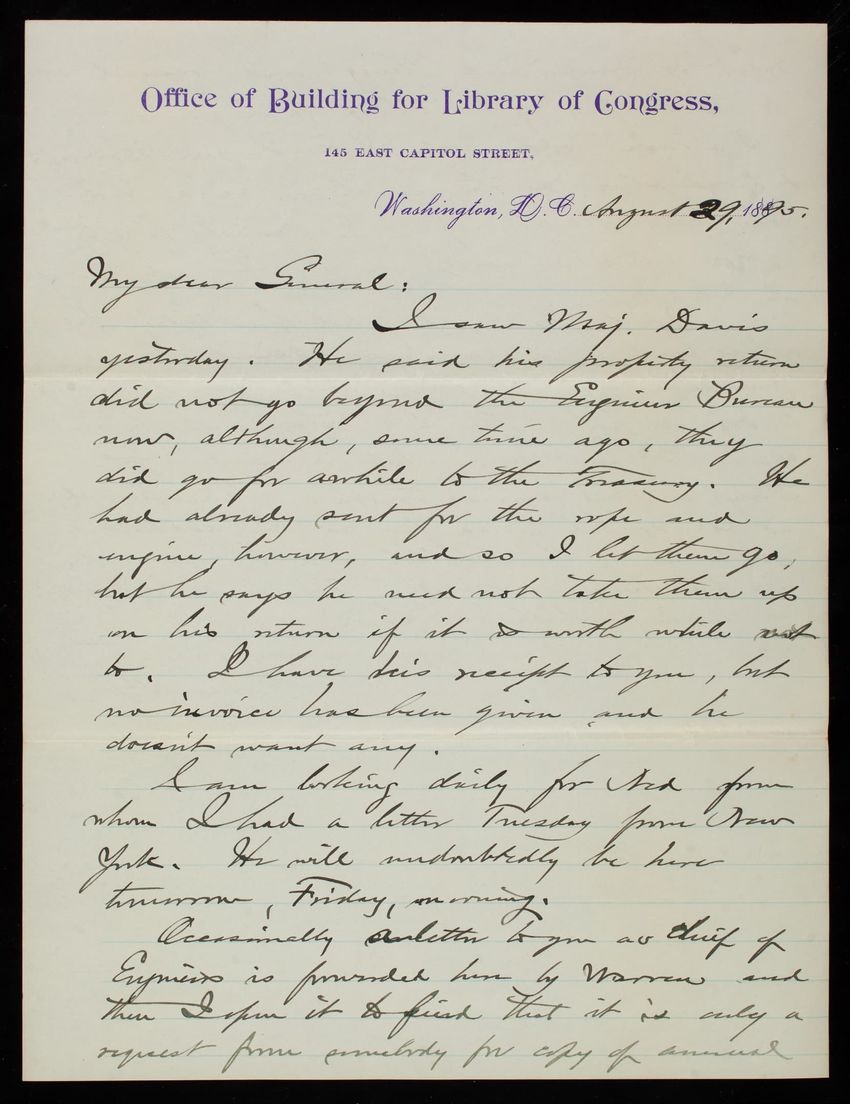 Office of Building for Library of Congress,
145 EAST CAPITOL STREET,
Washington, D.C. August 29, 1895.
My dear General:
I saw Maj. Davis
yesterday. He said his property return
did not go beyond the Engineer Bureau
now, although, some time ago, they
did go for awhile to the Treasury. He
had already sent for the rope and
engine, however, and so I let them go,
but he says he need not take them up
on his return if it is worth while not
to. I have his receipt to you, but
no invoice has been given and he
doesn't want any.
I am looking daily for Ned from
whom I had a letter Tuesday from New
York. He will undoubtedly be here
tomorrow, Friday, morning.
Occasionally a letter to you as Chief of
Engineers is forwarded here by Warren and
then I open it to find that it is only a
request from somebody for copy of annual